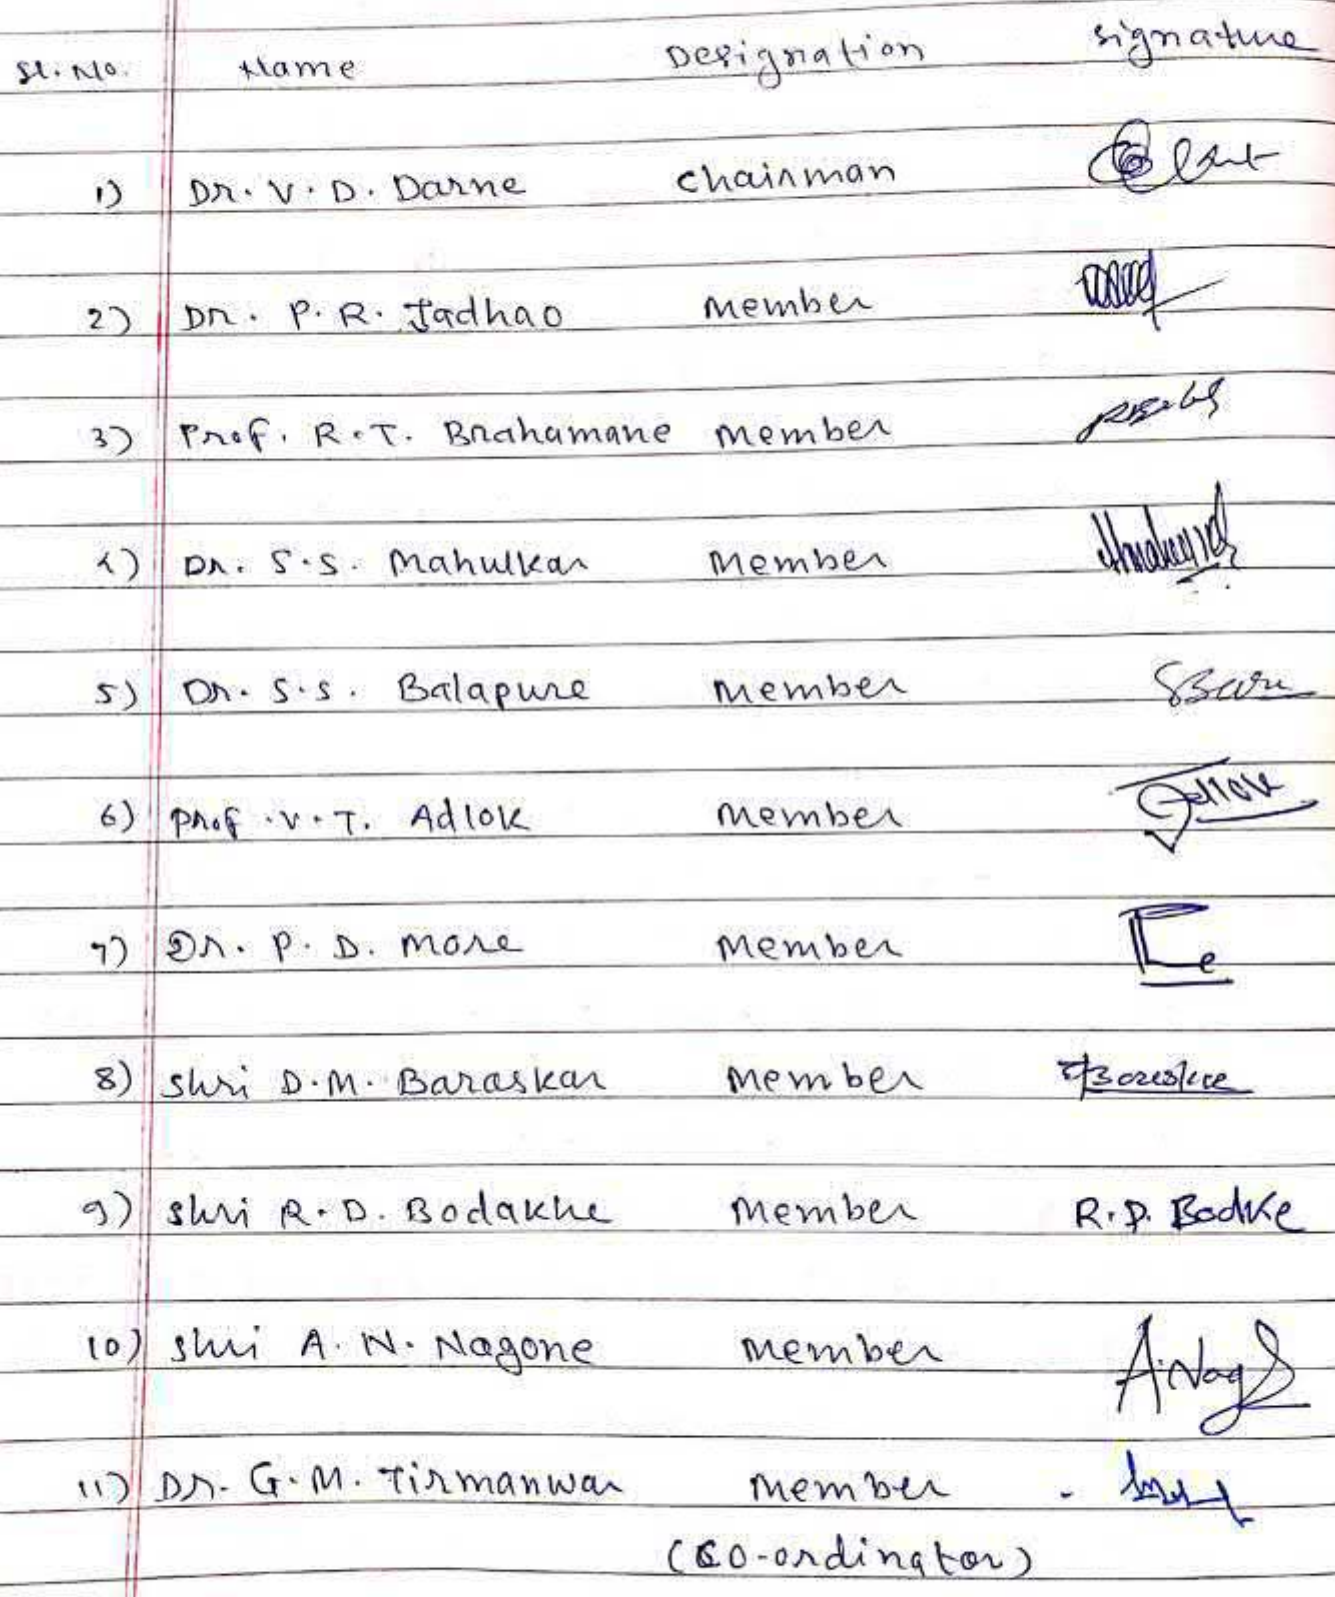 Sl. No. Name Designation Signature
1) Dr. V. D. Darne Chairman
2) Dr. P. R. Jadhao Member
3) Prof. R. T. Brahamane Member
4) Dr. S. S. Mahulkar Member
5) Dr. S. S. Balapure Member
6) Prof. V. T. Adlok Member
7) Dr. P. D. More Member
8) Shri D. M. Baraskar Member
9) Shri R. D. Bodakhe Member R. D. Bodke
10) Shri A. N. Nagone Member
11) Dr. G. M. Tirmanwar Member
(Co-ordinator)